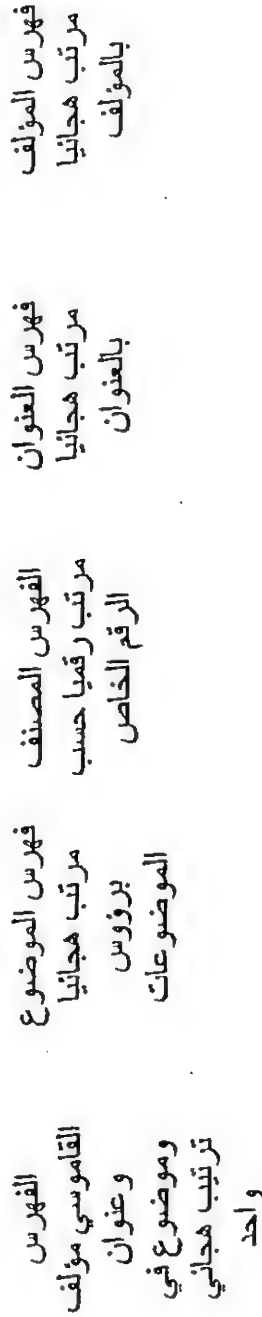 فهرس المؤلف
مرتب هجائيا
بالمؤلف
فهرس العنوان
مرتب هجائيا
بالعنوان
الفهرس المصنف
مرتب رقميا حسب
الرقم الخاص
فهرس الموضوع
مرتب هجائيا
برؤوس
الموضوعات
الفهرس
القاموسي مؤلف
وعنوان
وموضوع في
ترتيب هجائي
واحد